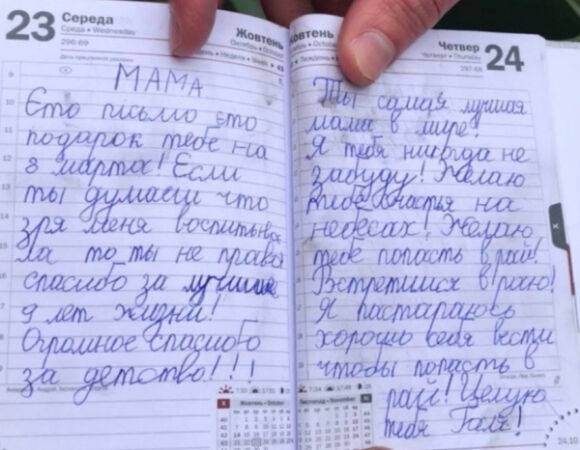 23 Середа
Среда • Wednesday
296-69
Жовтень
МАМА
Єто письмо єто
подарок тебе на
8 марта! Если
ты думаеш что
зря меня воспитывa
ла то ты не права
спасибо за лучшие
9 лет жизни!
Огромное спасибо
за детство!!!
Жовтень • October
Четвер 24
Четверг • Thursday
297-68
Ты самая лучшая
мама в мире!
Я тебя никогда не
забуду! Желаю
тебе счастья на
небесах! Желаю
тебе попасть в рай!
Встретимся в раю!
Я пастараюсь
хорошо себя вести
чтобы попасть в
рай! Целую
тебя Галя!
Листопад • November
24.10